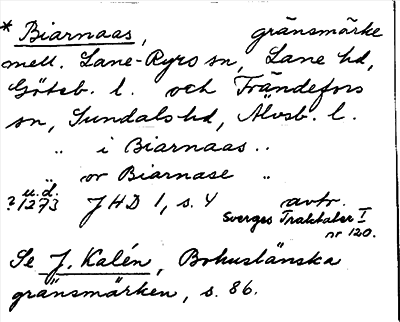 * Biarnaas, gränsmärke
mell. Lane-Ryrs sn, Lane hd,
Göteb. l. och Frändefors
sn, Sundals hd, Älvsb. l.
" i Biarnaas ..
" or Biarnase "
u.d.
? 1273 JHD 1, s. 4 avtr.
Sveriges Traktater I
nr 120.
Se J. Kalén, Bohuslänska
gränsmärken, s. 86.